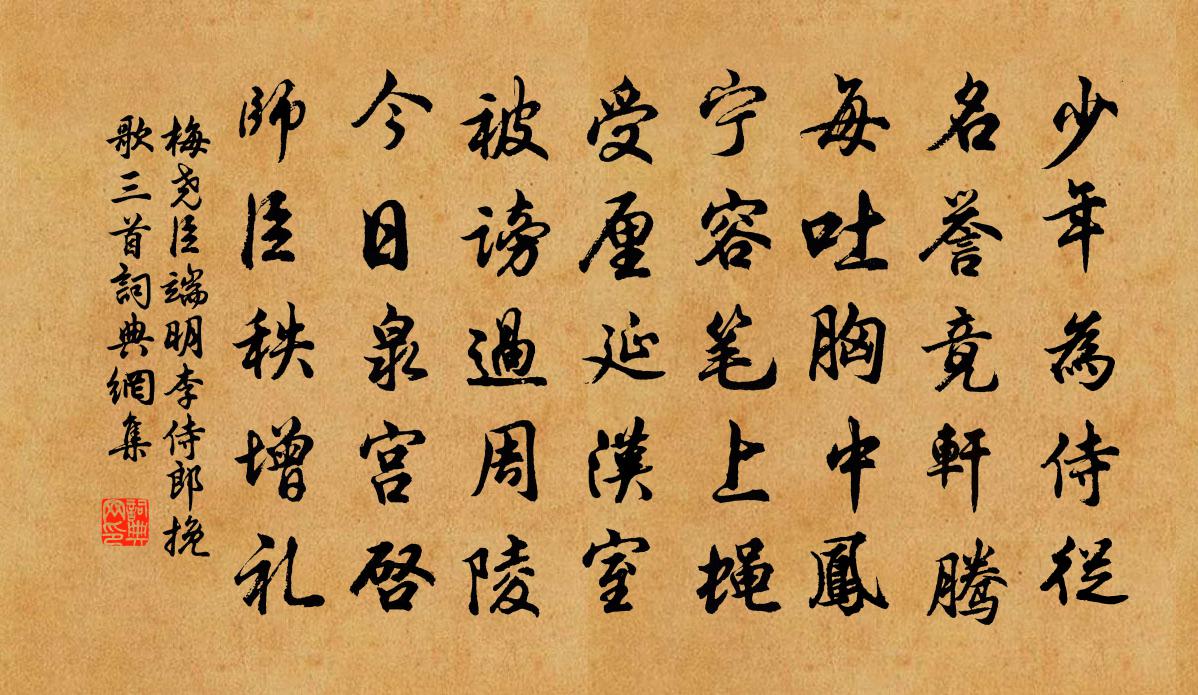 少年為侍從
名譽竟軒騰
每吐胸中鳳
宁容笔上蝇
受厘延漢室
被謗過周陵
今日泉宫啓
師臣秩增礼
梅尭臣端明李侍郎挽
歌三首詞典網集
詞典
网印